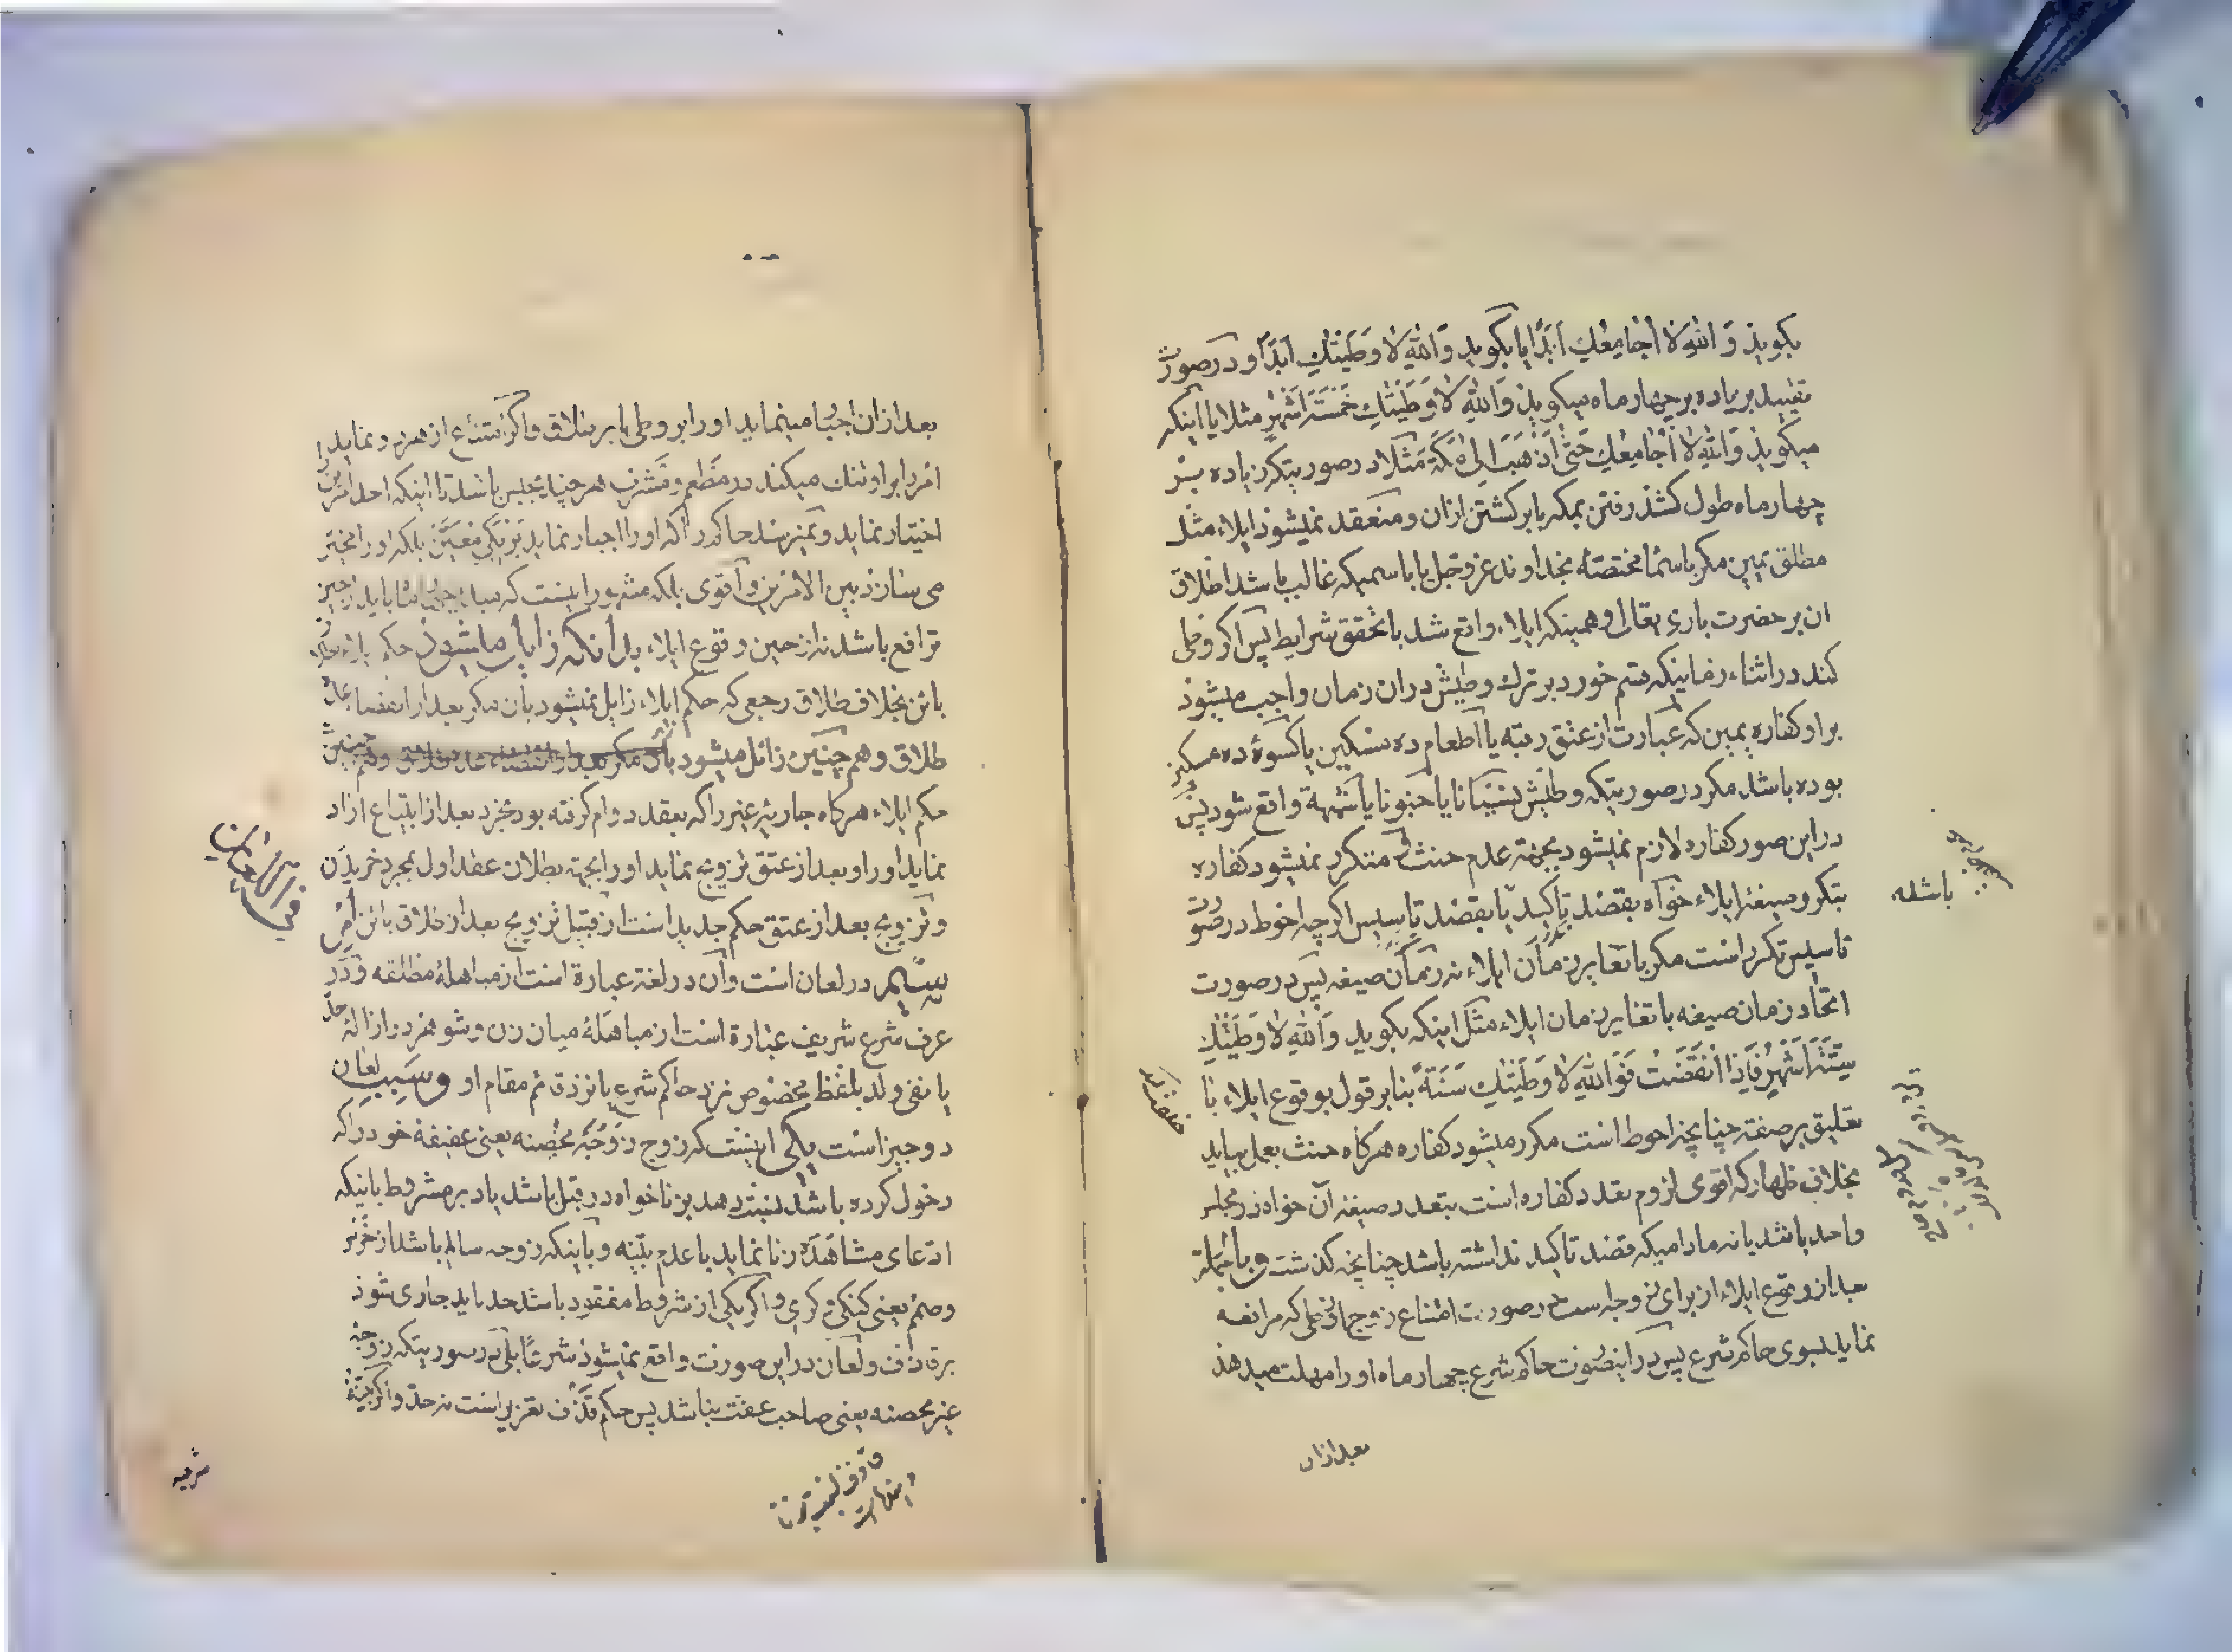 بکوید وَاللهِ لا اُجامِعُكِ اَبَدًا یا بکوید وَاللهِ لا وَطَیْتُكِ اَبَدًا و در صورت
تقیید بزیاده بر چهار ماه میکوید وَاللهِ لا وَطَیْتُكِ خَمْسَةَ اَشْهُرٍ مثلا یا اینکه
میکوید وَاللهِ لا اُجامِعُكِ حَتّی اَذْهَبَ اِلی مَکَّةَ مَثَلا در صورتیکه زیاده بر
چهار ماه طول کشد رفتن بمکه یا برکشتن ازان و منعقد نمیشود ایلاء مثل
مطلق یمین مکر باسماء مختصّه بخداوند عز وجل یا باسمیکه غالب باشد اطلاق
ان بر حضرت باری تعالی و همینکه ایلاء واقع شد با تحقق شرایط پس اکر وطی
کند در اثناء زمانیکه قسم خورد بر ترك وطیش دران زمان واجب میشود
بر او کفاره یمین که عبارت از عتق رقبه یا اطعام ده مسکین یا کسوۀ ده مسکین
بوده باشد مکر در صورتیکه وطیش نسیانا یا جنونا یا شبهة واقع شود پس
در این صور کفاره لازم نمیشود بجهة عدم حنث و متکرر نمیشود کفاره
بتکرر صیغۀ ایلاء خواه بقصد تاکید یا بقصد تاسیس اکرچه احوط در صورت
تاسیس تکرر است مکر با تغایر زمان ایلاء نه زمان صیغه پس در صورت
اتحاد زمان صیغه با تغایر زمان ایلاء مثل اینکه بکوید وَاللهِ لا وَطَیْتُكِ
سِتَّةَ اَشْهُرٍ فَاِذَا انْقَضَتْ فَوَاللهِ لا وَطَیْتُكِ سَنَةً بنابر قول بوقوع ایلاء با
تعلیق بر صفة چنانچه احوط است مکرر میشود کفاره هرکاه حنث بعمل بیاید
بخلاف ظهار که اقوی لزوم تعدد کفاره است بتعدد صیغه آن خواه در مجلس
واحد باشد یا نه مادامیکه قصد تاکید نداشته باشد چنانچه کذشت و بالجملة
بعد از وقوع ایلاء از برای زوجه است در صورت امتناع زوج از وطی که مرافعه
نماید بسوی حاکم شرع پس در اینصورت حاکم شرع چهار ماه او را مهلت میدهد
بعد ازان
باشد
بعد ازان اجبار مینماید او را بر وطی یا بر طلاق و اکر امتناع از هر دو نماید
امر را بر او تنك میکند در مَطعم و مَشرب هر چند بحبس باشد تا اینکه احد امرین را
اختیار نماید و نمیرسد حاکم را که او را اجبار نماید بر یکی معیَّن بلکه او را مخیّر
می سازد بین الامرین و اقوی بلکه مشهور اینست که مبدء چهار ماه باید از حین
ترافع باشد نه از حین وقوع ایلاء بدانکه زایل میشود حکم ایلاء بطلاق
بائن بخلاف طلاق رجعی که حکم ایلاء زایل نمیشود بان مکر بعد از انقضاء عدّه
طلاق و همچنین زائل میشود بان مکر بعد از انقضاء عده طلاق و همچنین
حکم ایلاء هرکاه جاریۀ غیر را که بعقد دوام کرفته بود بخرد بعد از ابتیاع ازاد
نماید او را و بعد از عتق تزویج نماید او را بجهة بطلان عقد اول بمجرد خریدن
و تزویج بعد از عتق حکم جدید است از قبیل تزویج بعد از طلاق بائن
در لعان است و آن در لغة عبارة است از مباهلۀ مطلقه و در
عرف شرع شریف عبارة است از مباهلۀ میان زن و شوهر در ازالۀ حدّ
یا نفی ولد بلفظ مخصوص نزد حاکم شرع یا نزد قائم مقام او وسَبَبِ لعان
دو چیز است یکی اینست که زوج زوجۀ محصنه یعنی عفیفۀ خود را که
دخول کرده باشد نسبت دهد بزنا خواه در قبل باشد یا دبر مشروط باینکه
ادّعای مشاهدۀ زنا نماید با عدم بیّنه و باینکه زوجه سالم باشد از خَرَس
و صَمَم یعنی کنکی و کری و اکر یکی از شروط مفقود باشد حد باید جاری شود
بر قاذف و لعان در این صورت واقع نمیشود شرعًا بلی در صورتیکه زوجه
غیر محصنه یعنی صاحب عفت نباشد پس حکم قذف تعزیر است نه حدّ و اکر بیّنۀ
فی اللعان
شرعیه